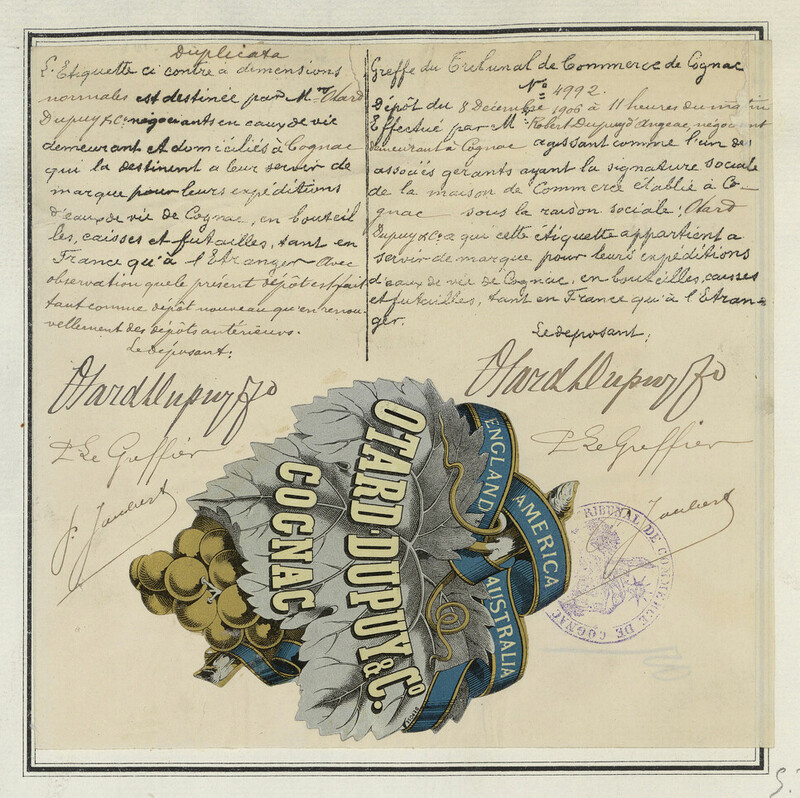 Duplicata
L'Etiquette ci contre à dimensions
normales est destinée par M.rs Otard
Dupuy & Co. négociants en eaux de vie
demeurant et domiciliés à Cognac
qui la destinent a leur servir de
marque pour leurs expéditions
d'eaux de vie de Cognac, en bouteil
les, caisses et futailles, tant en
France qu'à l'Etranger Avec
observation que le présent dépôt est fait
tant comme dépôt nouveau qu'en renou
vellement des dépôts antérieurs.
Le déposant:
Otard Dupuy & Co
P. Le Greffier
J. Joubert
Greffe du Tribunal de Commerce de Cognac
No 4992.
Dépôt du 8 Décembre 1906 à 11 heures du matin
Effectué par M.r Robert Dupuy d'Angeac, négociant
demeurant à Cognac agissant comme l'un des
associés gerants ayant la signature sociale
de la maison de Commerce etablie à Co-
gnac sous la raison sociale: Otard
Dupuy & Co. a qui cette étiquette appartient a
servir de marque pour leurs expéditions
d'eaux de vie de Cognac, en bouteilles, caisses
et futailles, tant en France qu'à l'Etran-
ger.
Le deposant:
Otard Dupuy & Co
P. Le Greffier
Joubert
OTARD-DUPUY & Co.
COGNAC
ENGLAND
AMERICA
AUSTRALIA
TRIBUNAL DE COMMERCE DE COGNAC